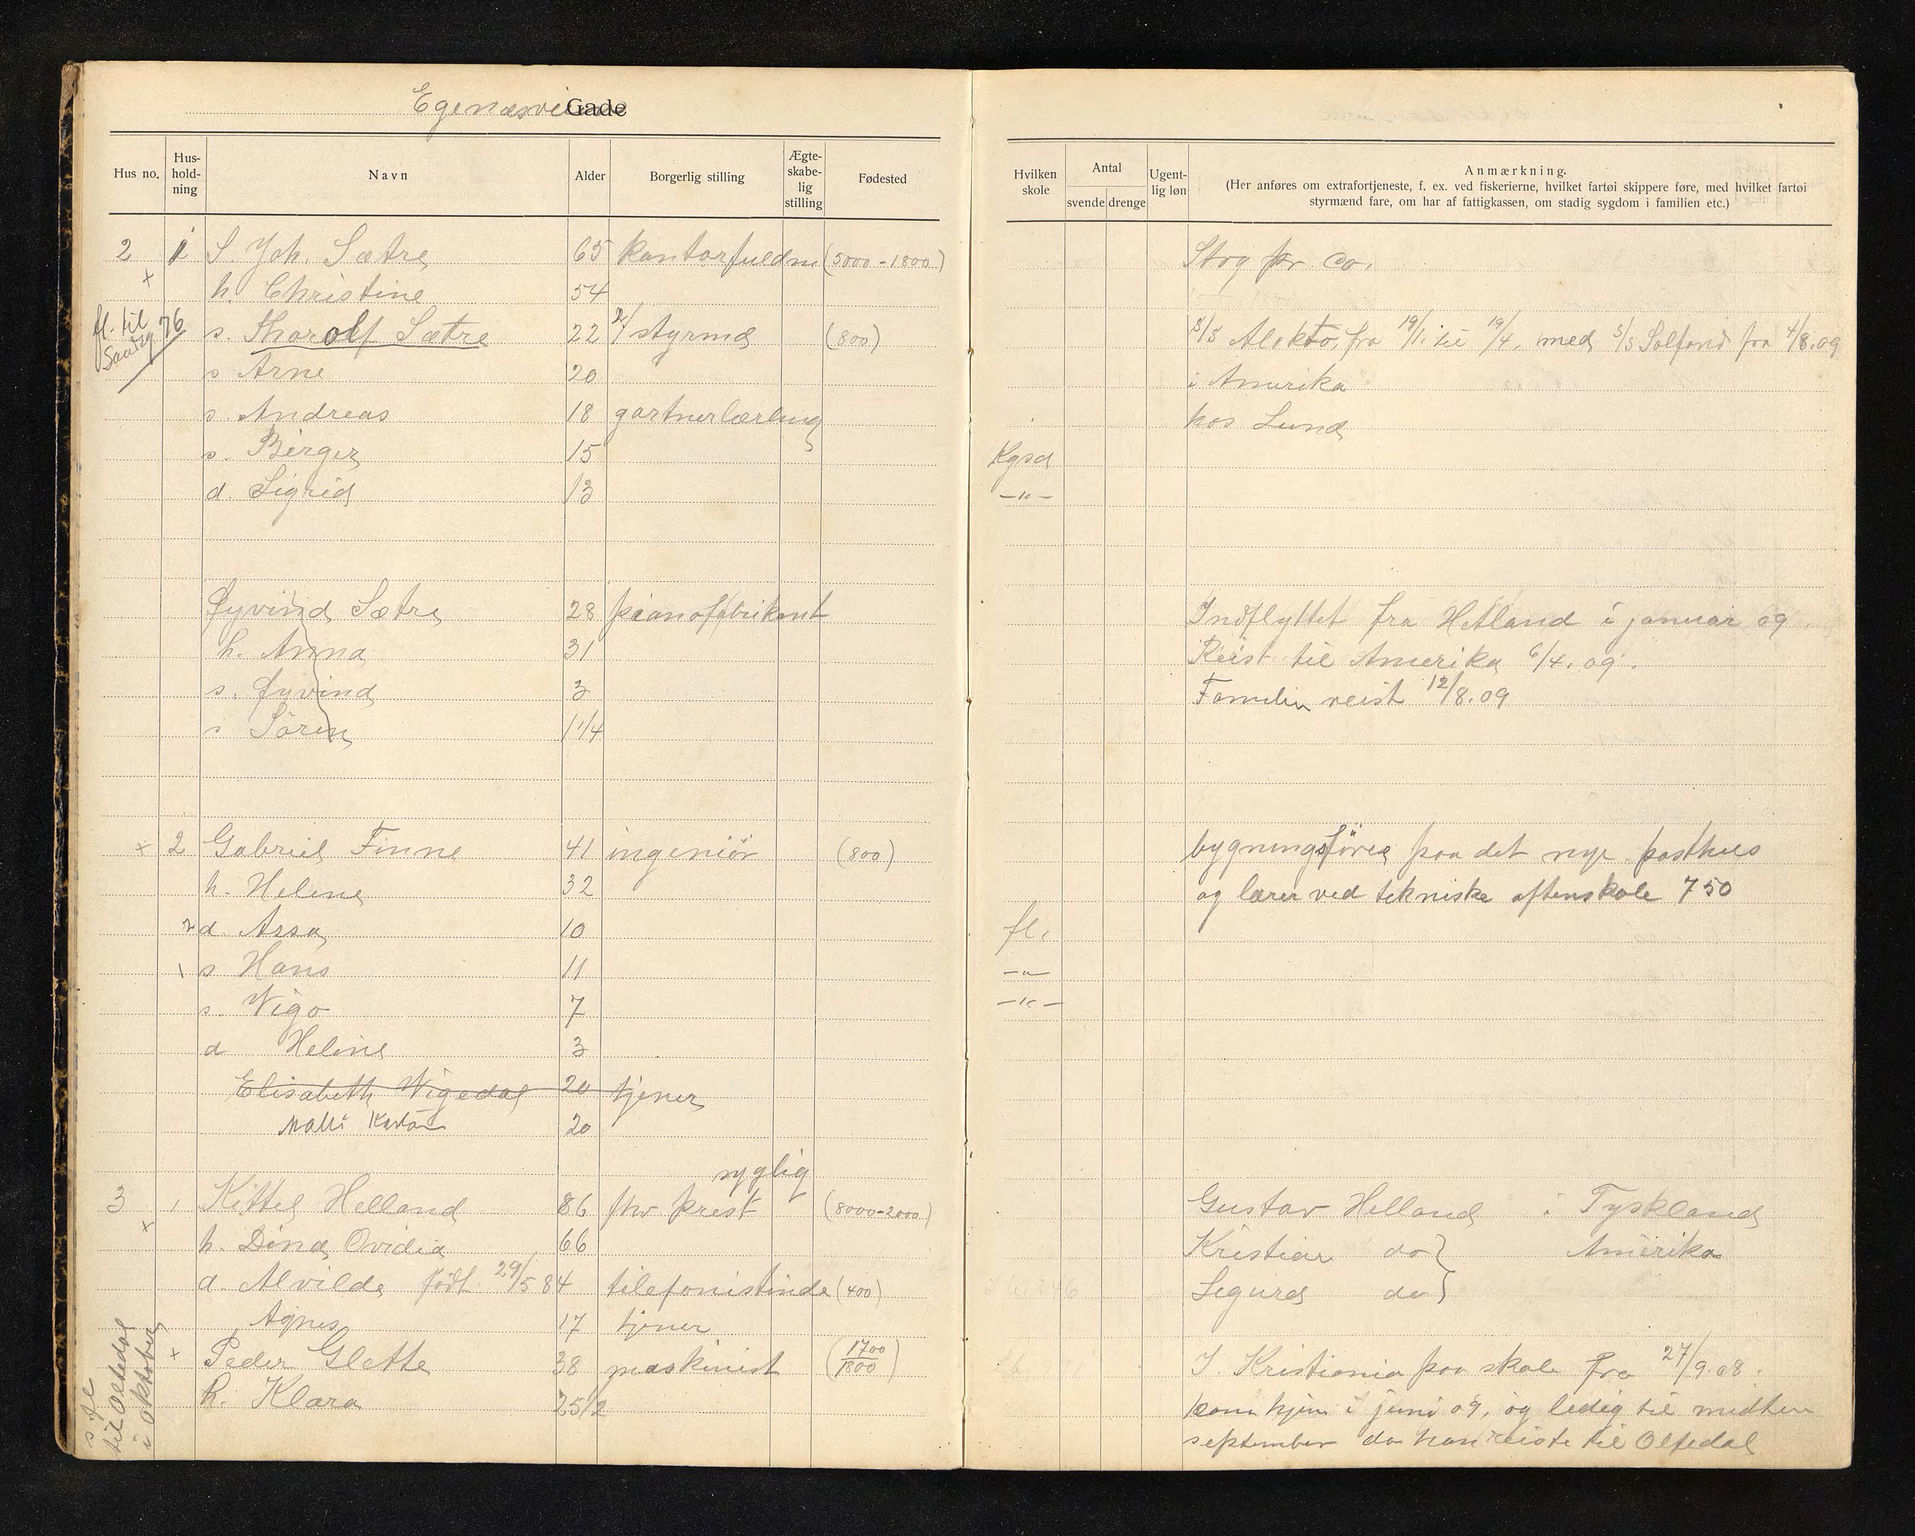 Egenæsveien Gade
Hus no. Hus-hold-ning Navn Alder Borgerlig stilling Ægte-skabe-lig stilling Fødested
Hvilken skole Antal svende drenge Ugent-lig løn Anmærkning.
(Her anføres om extrafortjeneste, f. ex. ved fiskerierne, hvilket fartøi skippere føre, med hvilket fartøi
styrmænd fare, om har af fattigkassen, om stadig sygdom i familien etc.)
2 1 S. Joh. Sætre 65 kontorfuldm (5000-1800) Stog pr co.
x h. Christine 54
fl. til 76 s. Thorolf Sætre 22 2/ styrmd (800) s/s Alekto, fra 19/1. til 19/4. med s/s Solfond fra 4/8.09
s Arne 20 i Amerika
s Andreas 18 gartnerlærling hos Lund
s. Birger 15 Kgsd
d. Sigrid 13 -"-
Øyvind Sætre 28 pianofabrikant Indflyttet fra Hetland i januar 09.
h. Anna 31 Reist til Amerika 6/4.09.
s. Øyvind 3 Familien reist 12/8.09
s Sören 1 1/4
x 2 Gabriel Finne 41 ingeniør (800) bygningsfører paa det nye posthus
h. Helene 32 og lærer ved tekniske aftenskole 750
2 d. Assa 10 fl.
1 s Hans 11 -"-
s. Vigo 7 -"-
d Heline 3
Elisabeth Vigedal 20 tjener
Malli 20
syglig
3 1 Kittel Helland 86 fhv prest (8000-2000) Gustav Helland i Tyskland
x h. Dina Ovidia 66 Kristian do } Amerika
d. Alvilde født 29/5 84 telefonistinde (400) Sigurd do }
Agnes 17 tjener
x Peder Glette 38 maskinist (1700/1800) I. Kristiania paa skole fra 27/9.08.
h. Klara 25 1/2 kom hjem i juni 09, og ledig til midten
september da han reiste til Oltedal
s fl
til Oltedal
i oktober